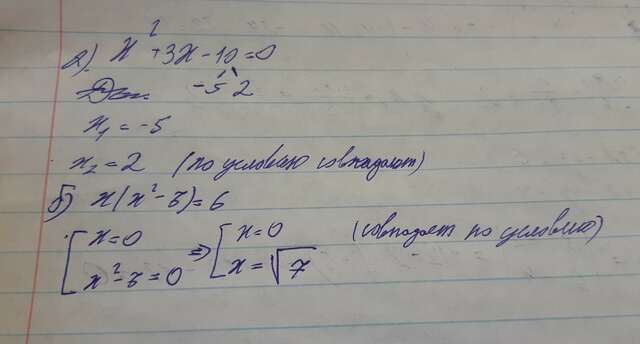 а). x² + 3x - 10 = 0
-5 2
x₁ = -5
x₂ = 2 (по условию совпадают)
б) x(x² - 7) = 6
[ x = 0 => [ x = 0 (совпадает по условию)
x² - 7 = 0 x = √7